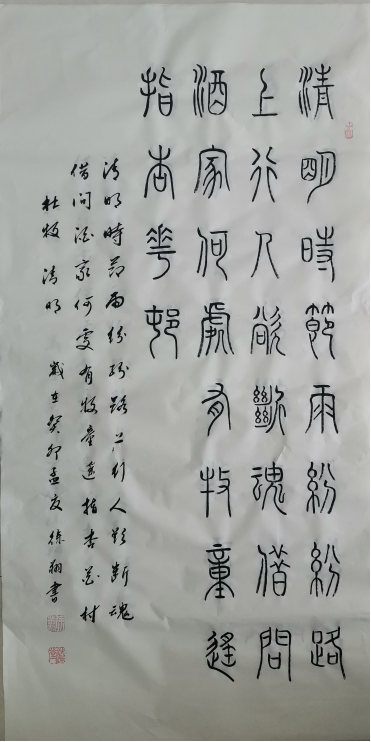 清明時節雨紛紛路
上行人欲斷魂借問
酒家何處有牧童遙
指杏華邨
清明時節雨紛紛路上行人欲斷魂
借問酒家何處有牧童遙指杏花村
杜牧 清明 歲在癸卯孟夏 徐翔書